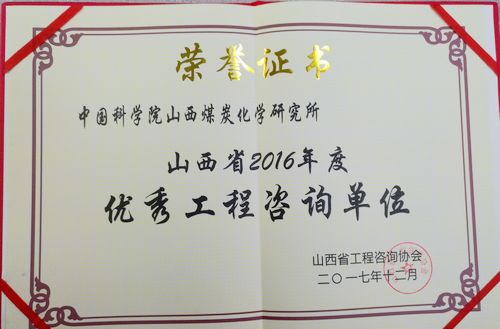 荣誉证书
中国科学院山西煤炭化学研究所
山西省2016年度
优秀工程咨询单位
山西省工程咨询协会
二〇一七年十二月